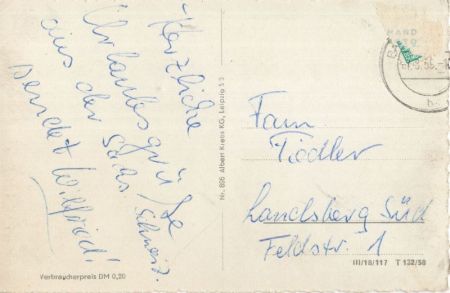 Herzliche
Urlaubsgrüße
aus der Sächs. Schweiz.
sendet Wilfried!
Verbraucherpreis DM 0,20
Nr. 895 Albert Krebs KG, Leipzig S 3
Fam
Fiedler
Landsberg Süd
Feldstr. 1
III/18/117 T 132/58